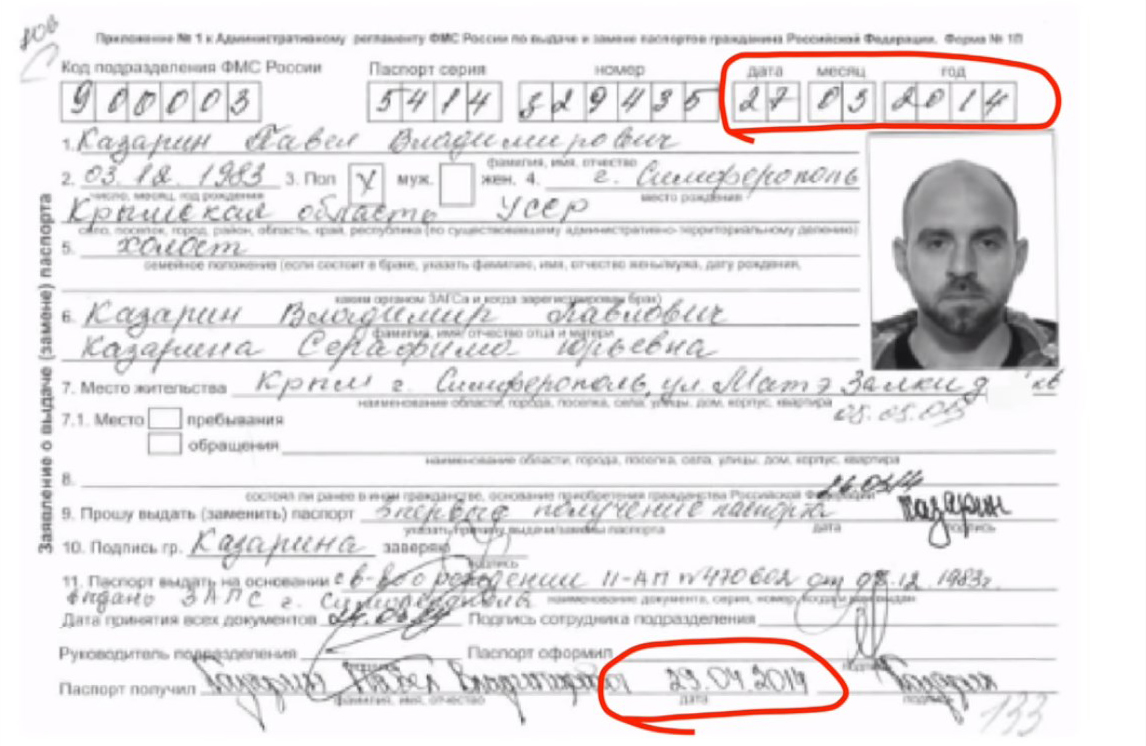 Приложение № 1 к Административному регламенту ФМС России по выдаче и замене паспортов гражданина Российской Федерации. Форма № 1П
Код подразделения ФМС России Паспорт серия номер дата месяц год
900003 5414 329435 27 03 2014
1. Казарин Павел Владимирович
фамилия, имя, отчество
2. 03.12.1983 3. Пол У муж. жен. 4. г. Симферополь
число, месяц, год рождения место рождения
Крымская область УССР
село, поселок, город, район, область, край, республика (по существовавшему административно-территориальному делению)
5. холост
семейное положение (если состоит в браке, указать фамилию, имя, отчество жены/мужа, дату рождения,
каким органом ЗАГСа и когда зарегистрирован брак)
6. Казарин Владимир Павлович
фамилия, имя, отчество отца и матери
Казарина Серафима Юрьевна
7. Место жительства Крым г. Симферополь, ул. Матэ Залки д кв
наименование области, города, поселка, села, улицы, дом, корпус, квартира
7.1. Место пребывания
обращения
наименование области, города, поселка, села, улицы, дом, корпус, квартира
8.
состоял ли ранее в ином гражданстве, основание приобретения гражданства Российской Федерации
9. Прошу выдать (заменить) паспорт Впервые получение паспорта Казарин
указать причину выдачи/замены паспорта дата подпись
10. Подпись гр. Казарина заверяю
подпись
11. Паспорт выдать на основании св-во о рождении II-АП №470602 от 08.12.1983г.
наименование документа, серия, номер, когда и кем выдан
выдано ЗАГС г. Симферополя
Дата принятия всех документов Подпись сотрудника подразделения
Руководитель подразделения Паспорт оформил
подпись
Паспорт получил Казарин Павел Владимирович 29.04.2014
фамилия, имя, отчество дата подпись
133
Заявление о выдаче (замене) паспорта